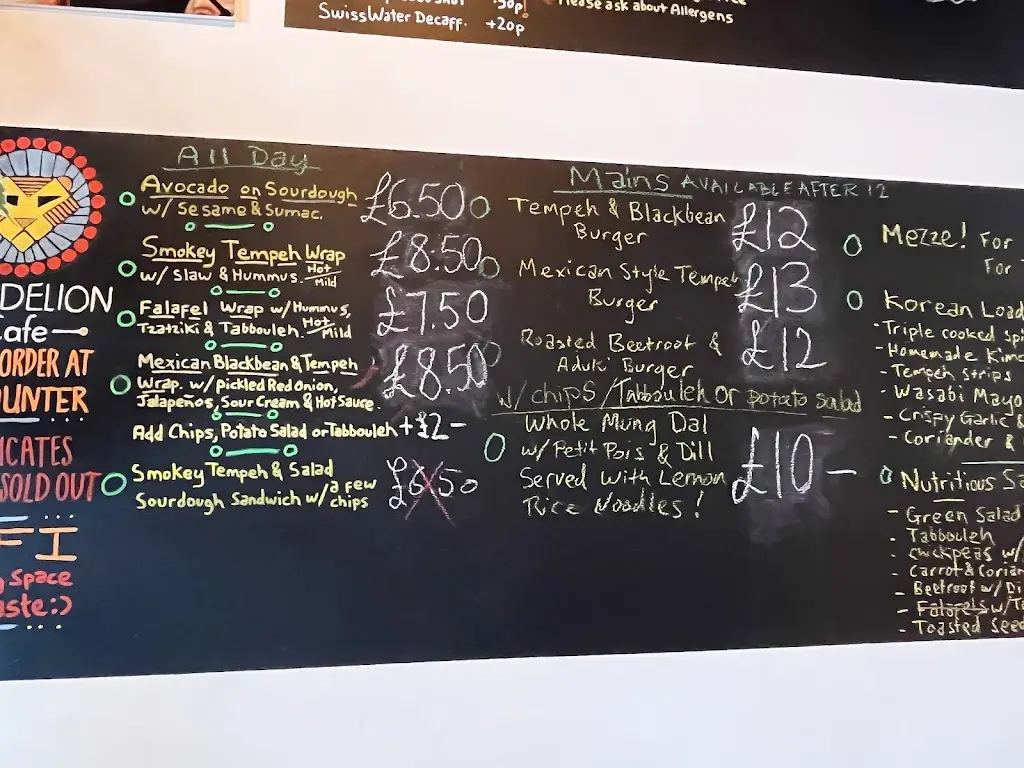 +50p!
SwissWater Decaff. +20p
Please ask about Allergens
DELION
afe
ORDER AT
UNTER
ICATES
SOLD OUT
FI
Space
aste:)
All Day
Avocado on Sourdough
w/ Sesame & Sumac. £6.50
Smokey Tempeh Wrap
w/ Slaw & Hummus. Hot Mild £8.50
Falafel Wrap w/ Hummus,
Tzatziki & Tabbouleh. Hot Mild £7.50
Mexican Blackbean & Tempeh
Wrap. w/ pickled Red onion,
Jalapeños, Sour Cream & Hot Sauce. £8.50
Add Chips, Potato Salad or Tabbouleh +£2-
Smokey Tempeh & Salad
Sourdough Sandwich w/ a few chips £6.50
Mains AVAILABLE AFTER 12
Tempeh & Blackbean
Burger £12
Mexican Style Tempeh
Burger £13
Roasted Beetroot &
Aduki Burger £12
w/ chips / Tabbouleh or potato salad
Whole Mung Dal
w/ Petit Pois & Dill
Served with Lemon
Rice Noodles! £10-
Mezze! For
For
Korean Load
- Triple cooked Spi
- Homemade Kimc
- Tempeh Strips
- Wasabi Mayo
- Crispy Garlic &
- Coriander &
Nutritious Sa
- Green Salad
- Tabbouleh
- chickpeas w/
- Carrot & Corian
- Beetroot w/ Di
- Falafels w/ T
- Toasted Seed